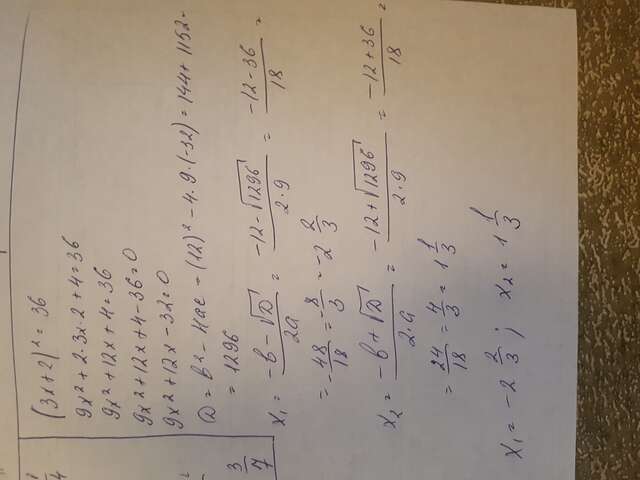 (3x+2)² = 36
9x²+2·3x·2+4=36
9x²+12x+4=36
9x²+12x+4-36=0
9x²+12x-32=0
D = b²-4ac = (12)²-4·9·(-32)=144+1152=
= 1296
x₁ = (-b-√D)/2a = (-12-√1296)/(2·9) = (-12-36)/18 =
= -48/18 = -8/3 = -2 2/3
x₂ = (-b+√D)/(2·a) = (-12+√1296)/(2·9) = (-12+36)/18 =
= 24/18 = 4/3 = 1 1/3
x₁ = -2 2/3 ; x₂ = 1 1/3
4
3/7